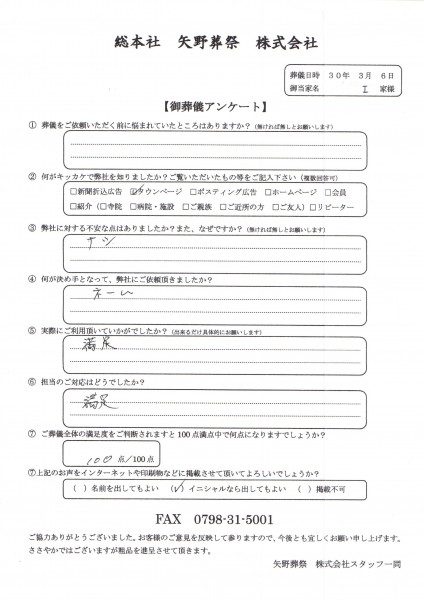 総本社 矢野葬祭 株式会社
葬儀日時 30年 3月 6日
御当家名 I 家様
【御葬儀アンケート】
① 葬儀をご依頼いただく前に悩まれていたところはありますか?(無ければ無しとお願いします)
② 何がキッカケで弊社を知りましたか?ご覧いただいたもの等をご記入下さい(複数回答可)
□新聞折込広告 ☑タウンページ □ポスティング広告 □ホームページ □会員
□紹介(□寺院 □病院・施設 □ご親族 □ご近所の方 □ご友人)□リピーター
③ 弊社に対する不安な点はありましたか?また、なぜですか?(無ければ無しとお願いします)
ナシ
④ 何が決め手となって、弊社にご依頼頂きましたか?
⑤ 実際にご利用頂いていかがでしたか?(出来るだけ具体的にお願いします)
満足
⑥ 担当のご対応はどうでしたか?
満足
⑦ ご葬儀全体の満足度をご判断されますと100点満点中で何点になりますでしょうか?
100点/100点
⑦上記のお声をインターネットや印刷物などに掲載させて頂いてよろしいでしょうか?
( )名前を出してもよい (✓)イニシャルなら出してもよい ( )掲載不可
FAX 0798-31-5001
ご協力ありがとうございました。お客様のご意見を反映して参りますので、今後とも宜しくお願い申し上げます。
ささやかではございますが粗品を進呈させて頂きます。
矢野葬祭 株式会社スタッフ一同